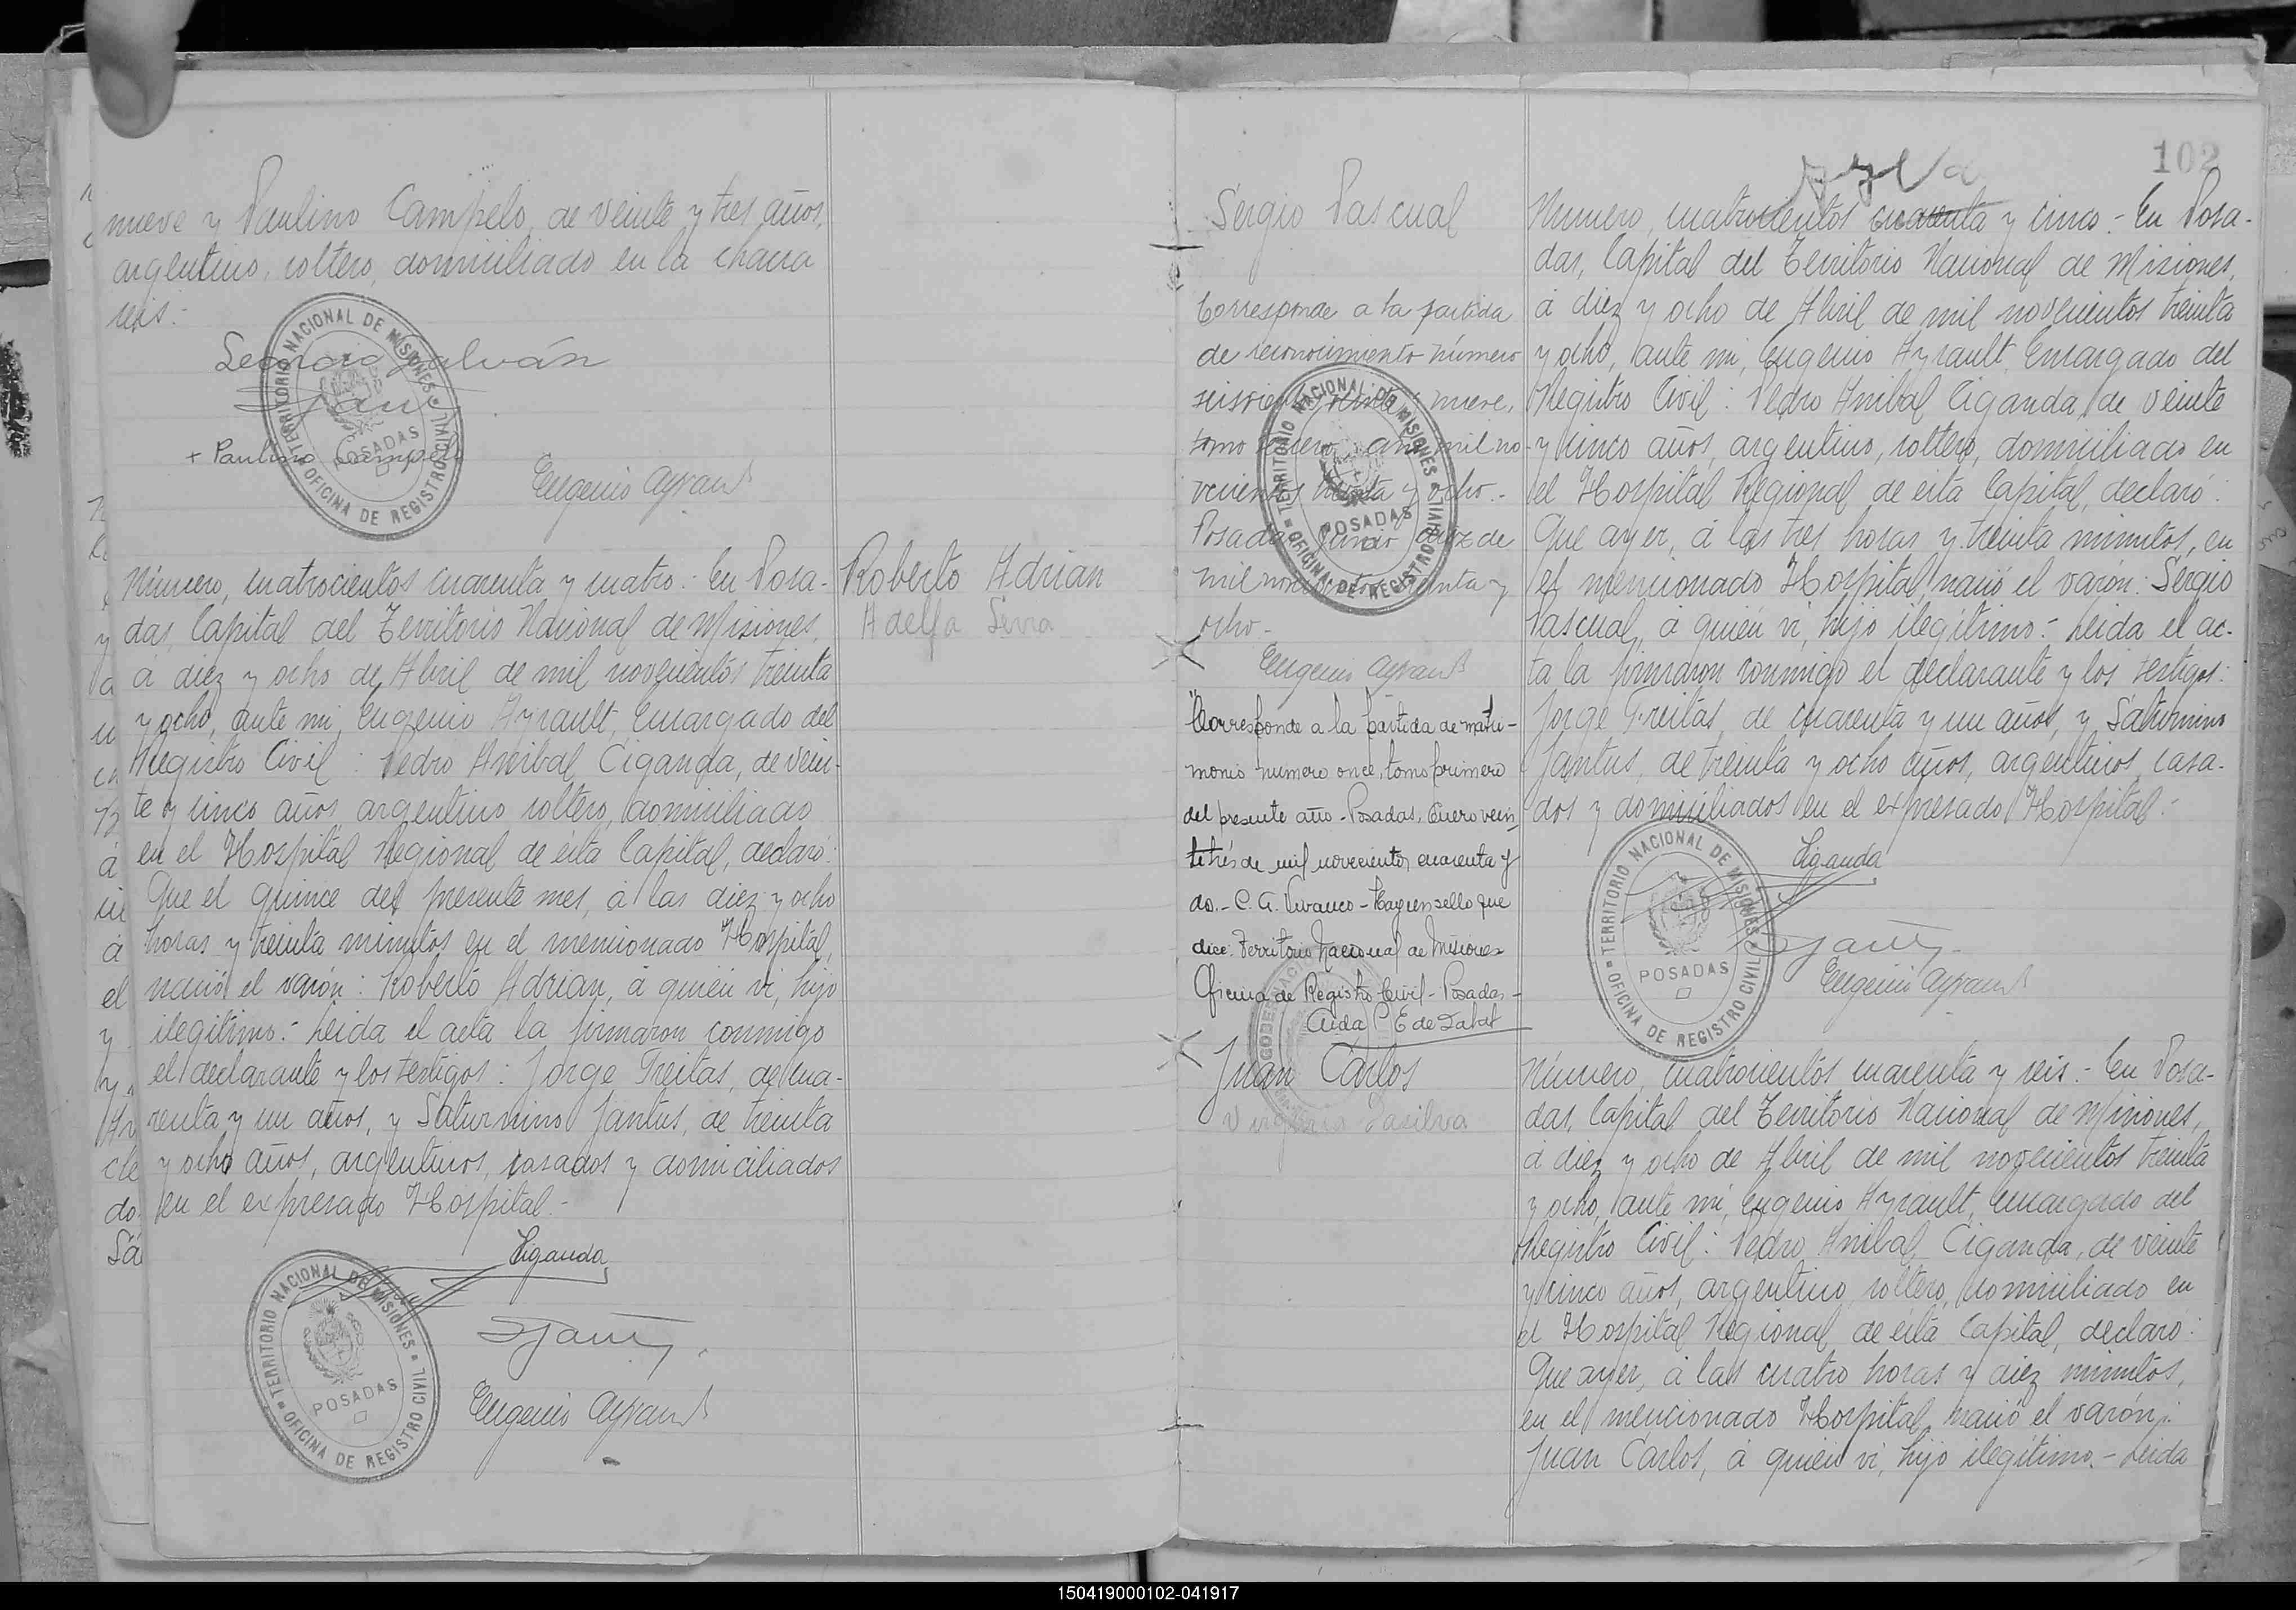 nueve y Paulino Campelo, de veinte y tres años,
argentino, soltero, domiciliado en la chacra
seis.-
Galván
+ Paulino Campelo
Eugenio Ayrault
TERRITORIO NACIONAL DE MISIONES
POSADAS
OFICINA DE REGISTRO CIVIL
Roberto Adrian
Adelfa Serra
Número, cuatrocientos cuarenta y cuatro.- En Posa-
das, Capital del Territorio Nacional de Misiones,
á diez y ocho de Abril de mil novecientos treinta
y ocho, ante mi, Eugenio Ayrault, Encargado del
Registro Civil: Pedro Anibal Ciganda, de vein-
te y cinco años, argentino, soltero, domiciliado
en el Hospital Regional de ésta Capital, declaró:
Que el quince del presente mes, á las diez y ocho
horas y treinta minutos en el mencionado Hospital,
nació el varón: Roberto Adrian, á quién vi, hijo
ilegítimo.- Leida el acta la firmaron conmigo
el declarante y los testigos: Jorge Freitas, de cua-
renta y un años, y Saturnino Jantus, de treinta
y ocho años, argentinos, casados y domiciliados
en el expresado Hospital.-
Ciganda
Eugenio Ayrault
TERRITORIO NACIONAL DE MISIONES
POSADAS
OFICINA DE REGISTRO CIVIL
102
Sergio Pascual
Corresponde a la partida
de reconocimiento número
seiscientos nueve,
tomo año mil no-
vecientos treinta y ocho.-
Posadas, Junio diez de
mil novecientos treinta y
ocho.-
Eugenio Ayrault
TERRITORIO NACIONAL DE MISIONES
POSADAS
OFICINA DE REGISTRO CIVIL
"Corresponde a la partida de matri-
monio numero once, tomo primero
del presente año - Posadas, Enero vein-
titrés de mil novecientos cuarenta y
do.- C. A. Vivanco - Hay un sello que
dice: Territorio Nacional de Misiones
Oficina de Registro Civil - Posadas -
Aida E de
Número, cuatrocientos cuarenta y cinco.- En Posa-
das, Capital del Territorio Nacional de Misiones,
á diez y ocho de Abril de mil novecientos treinta
y ocho, ante mi, Eugenio Ayrault, Encargado del
Registro Civil: Pedro Anibal Ciganda, de veinte
y cinco años, argentino, soltero, domiciliado en
el Hospital Regional de ésta Capital, declaró:
Que ayer, á las tres horas y treinta minutos, en
el mencionado Hospital, nació el varón: Sergio
Pascual, á quién vi, hijo ilegítimo.- Leida el ac-
ta la firmaron conmigo el declarante y los testigos:
Jorge Freitas, de cuarenta y un años, y Saturnino
Jantus, de treinta y ocho años, argentinos, casa-
dos y domiciliados en el expresado Hospital.-
Ciganda
Eugenio Ayrault
TERRITORIO NACIONAL DE MISIONES
POSADAS
OFICINA DE REGISTRO CIVIL
Juan Cárlos
Dasilva
Número, cuatrocientos cuarenta y seis.- En Posa-
das, Capital del Territorio Nacional de Misiones,
á diez y ocho de Abril de mil novecientos treinta
y ocho, ante mi, Eugenio Ayrault, Encargado del
Registro Civil: Pedro Anibal Ciganda, de veinte
y cinco años, argentino, soltero, domiciliado en
el Hospital Regional de ésta Capital, declaró:
Que ayer, á las cuatro horas y diez minutos,
en el mencionado Hospital, nació el varón:
Juan Cárlos, á quién vi, hijo ilegítimo.- Leida
150419000102-041917